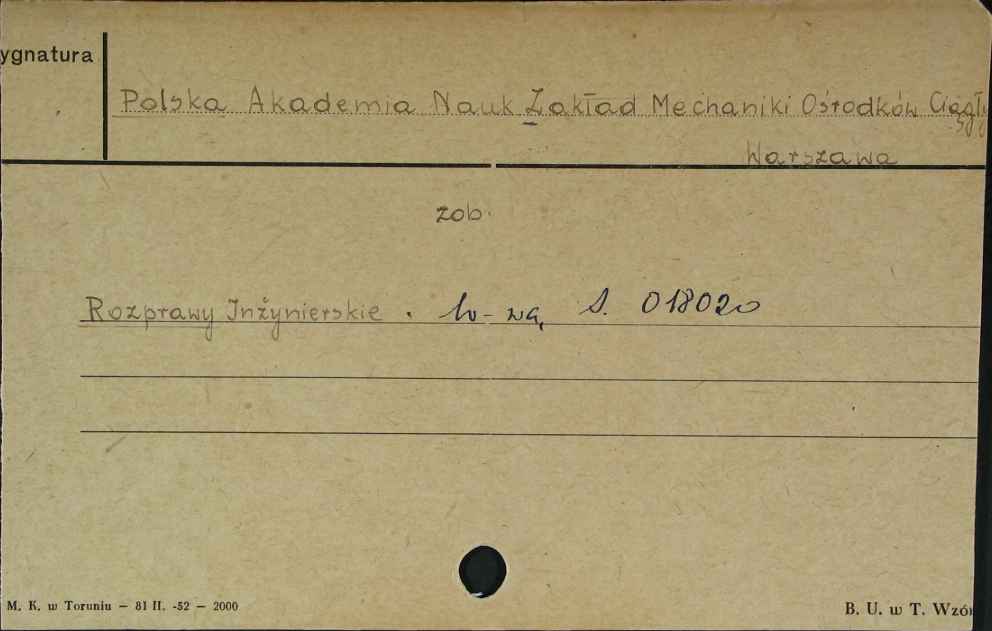 ygnatura
Polska Akademia Nauk Zakład Mechaniki Ośrodków Ciągły
Warszawa
zob.
Rozprawy Inżynierskie. W-wa, S. 018020
M. K. w Toruniu — 81 II. -52 — 2000
B. U. w T. Wzór